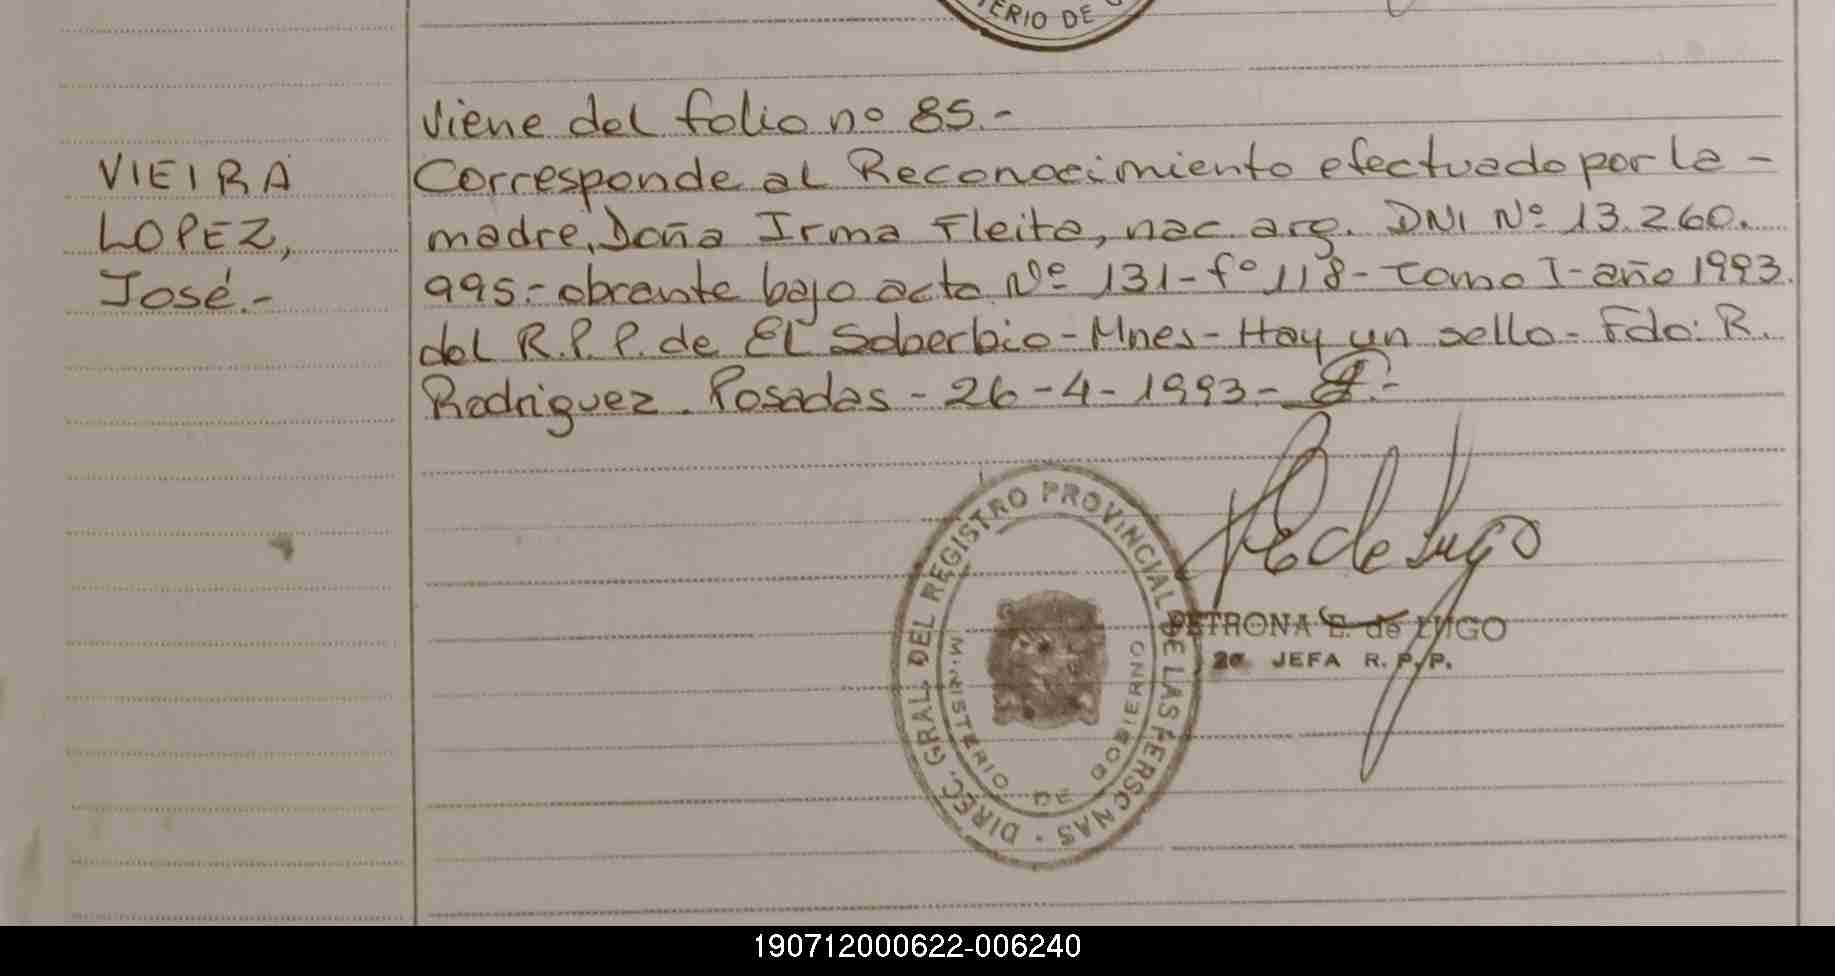 TERIO DE
Viene del folio nº 85.-
VIEIRA
LOPEZ,
José.-
Corresponde al Reconocimiento efectuado por la -
madre, Doña Irma Fleita, nac. arg. DNI Nº 13.260.
995.- obrante bajo acta Nº 131-fº 118- Tomo I- año 1993.
del R.P.P. de El Soberbio-Mnes- Hay un sello- Fdo: R.
Rodriguez. Posadas - 26-4-1993-
DIREC. GRAL. DEL REGISTRO PROVINCIAL DE LAS PERSONAS
MINISTERIO DE GOBIERNO
PETRONA E. de LUGO
2a JEFA R.P.P.
190712000622-006240